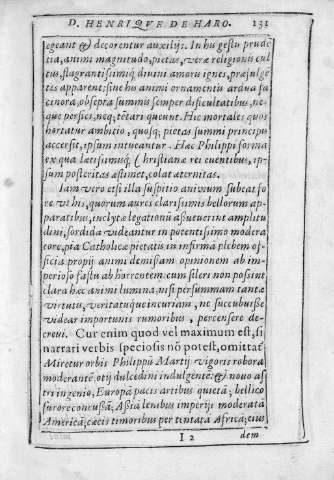 D. HENRIQVE DE HARO. 131
egeant & decorentur auxilijs. In his gestu prudē
tia, animi magnitudo, pietas, veræ religionis cul
tus, flagrantissimiq; diuini amoris ignes, præfulgē
tes apparent: sine his animi ornamentis ardua fa
cinora, obsepta summis semper dificultatibus, ne-
que perfici, neq; tētari queunt. Hec mortales quos
hortatur ambitio, quosq; pietas summi principis
accersit, ipsum intueantur. Hac Philippi forma
ex qua lætissimusq; Christianæ rei euentibus, ip-
sum posteritas æstimet, colat æternitas.
Iam vero etsi illa suspitio animum subeat fo
re vt his, quorum aures clarissimis bellorum ap-
paratibus, inclytæ legationis assueuerint amplitu
dini, sordida videantur in potentissimo modera
tore, pia Catholicæ pietatis in infirma plebem of-
ficia propij animi demissam opinionem ab im-
perioso fastu abhorrentem cum sileri non possint
clara hæc animi lumina, nisi per summam tantæ
virtutis, veritatisque incuriam, ne succubuisse
videar importunis rumoribus, percensere de-
creui. Cur enim quod vel maximum est, si
narrari verbis speciosis nō potest, omittā?
Miretur orbis Philippū Martij vigoris robora
moderantē, otij dulcedini indulgente: & nouo as
tri ingenio, Europā pacis artibus quietā; bellico
furore concussā; Asia lenibus imperijs moderata
America; cæcis timoribus pertentata Africa; eius
I 2 dem